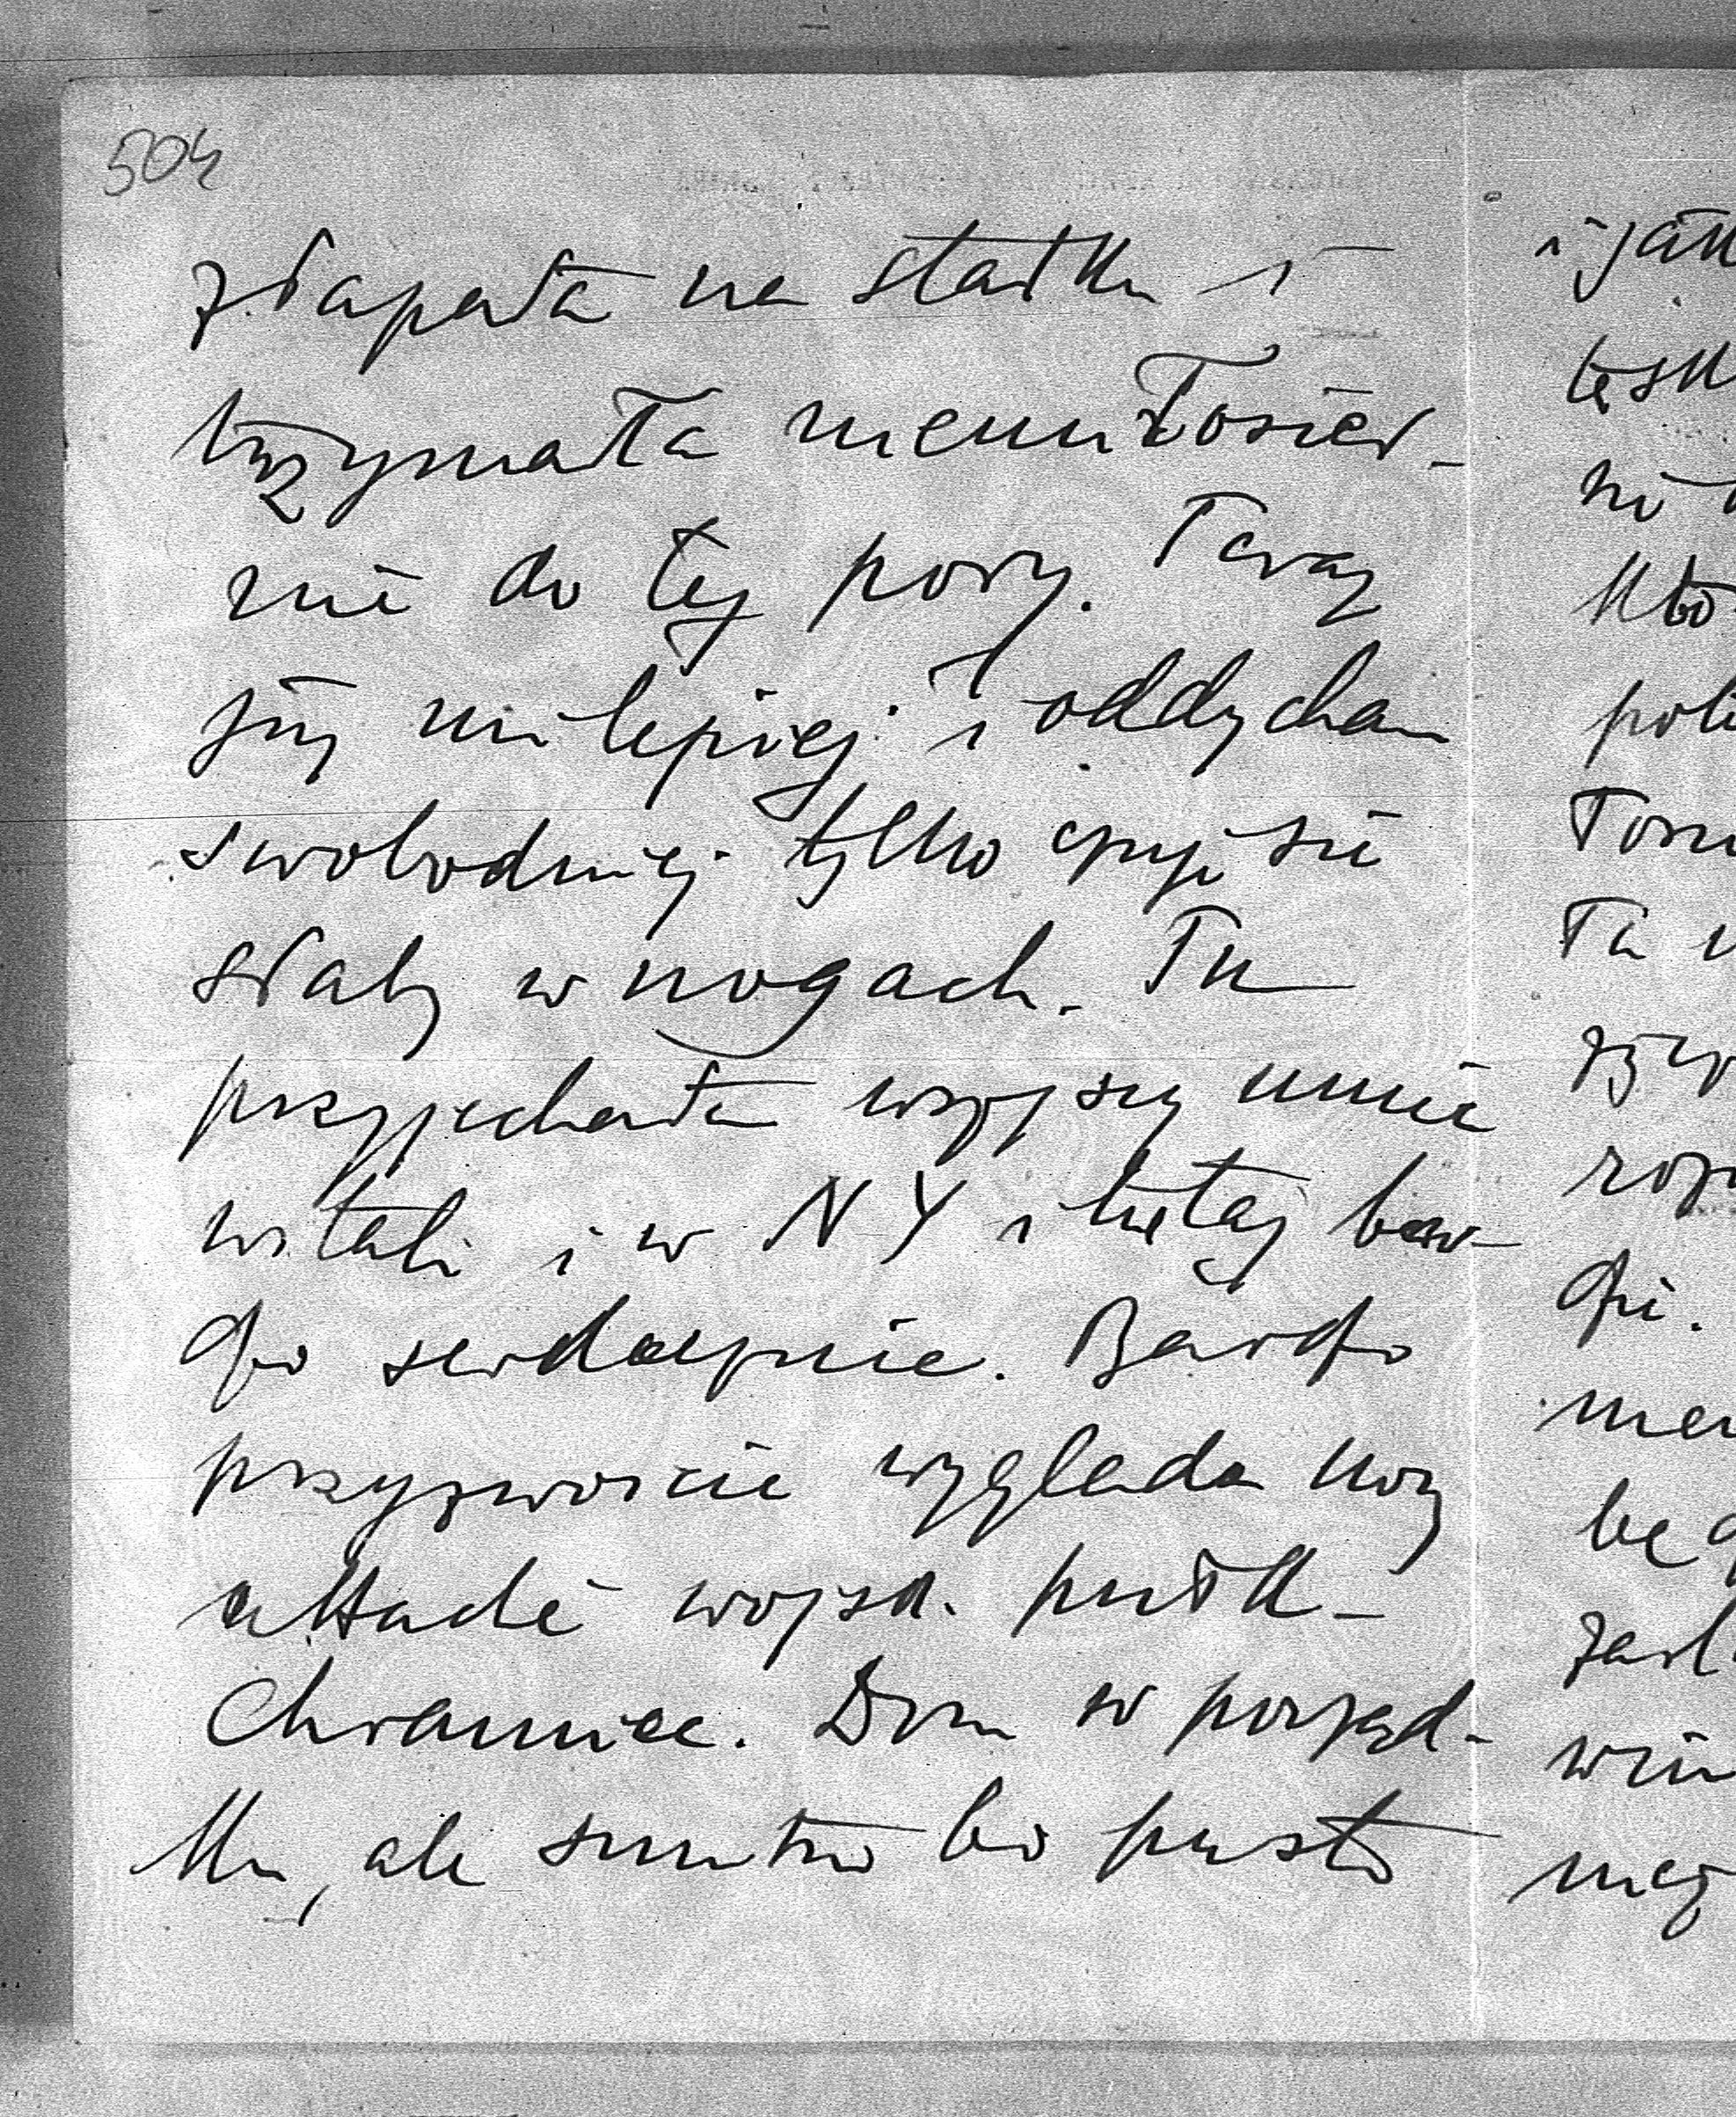 504
złapała na statku i
trzymała niemiłosier-
nie do tej pory. Teraz
już mi lepiej i oddycham
swobodniej tylko czuję się
słaby w nogach. Tu
przyjechałam wszyscy mnie
witali i w NY i tutaj bar-
dzo serdecznie. Bardzo
przyzwoicie wygląda nowy
attaché wojsk. pułk-
Chramiec. Dom w porząd-
ku, ale smutno bo pusto
i jak
tęsk
ni
kto
pol
Tom
Ta
rozp
dzi.
będ